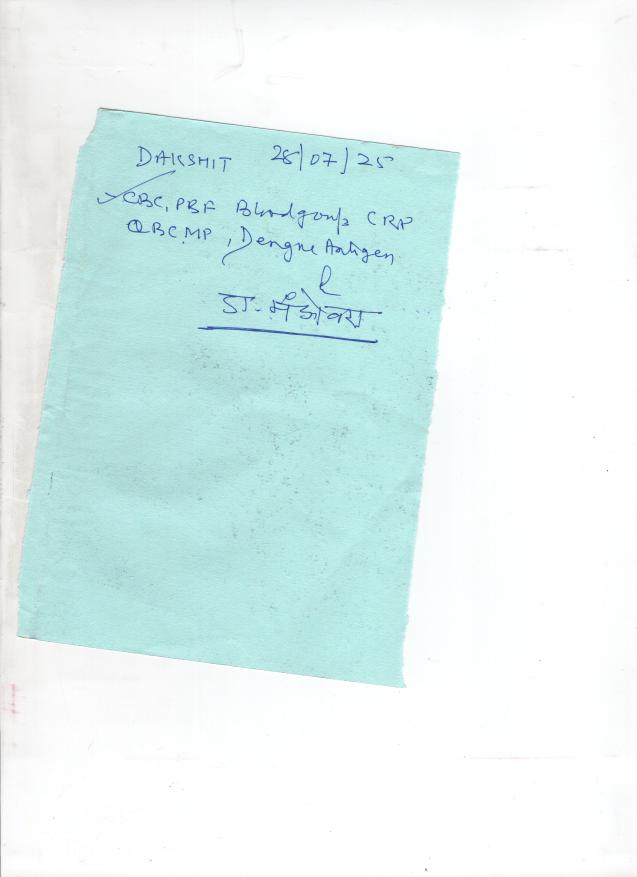 DAKSHIT 28/07/25
CBC, PBF Bloodgroup CRP
QBC MP, Dengue Antigen
डा. मंडोवरा